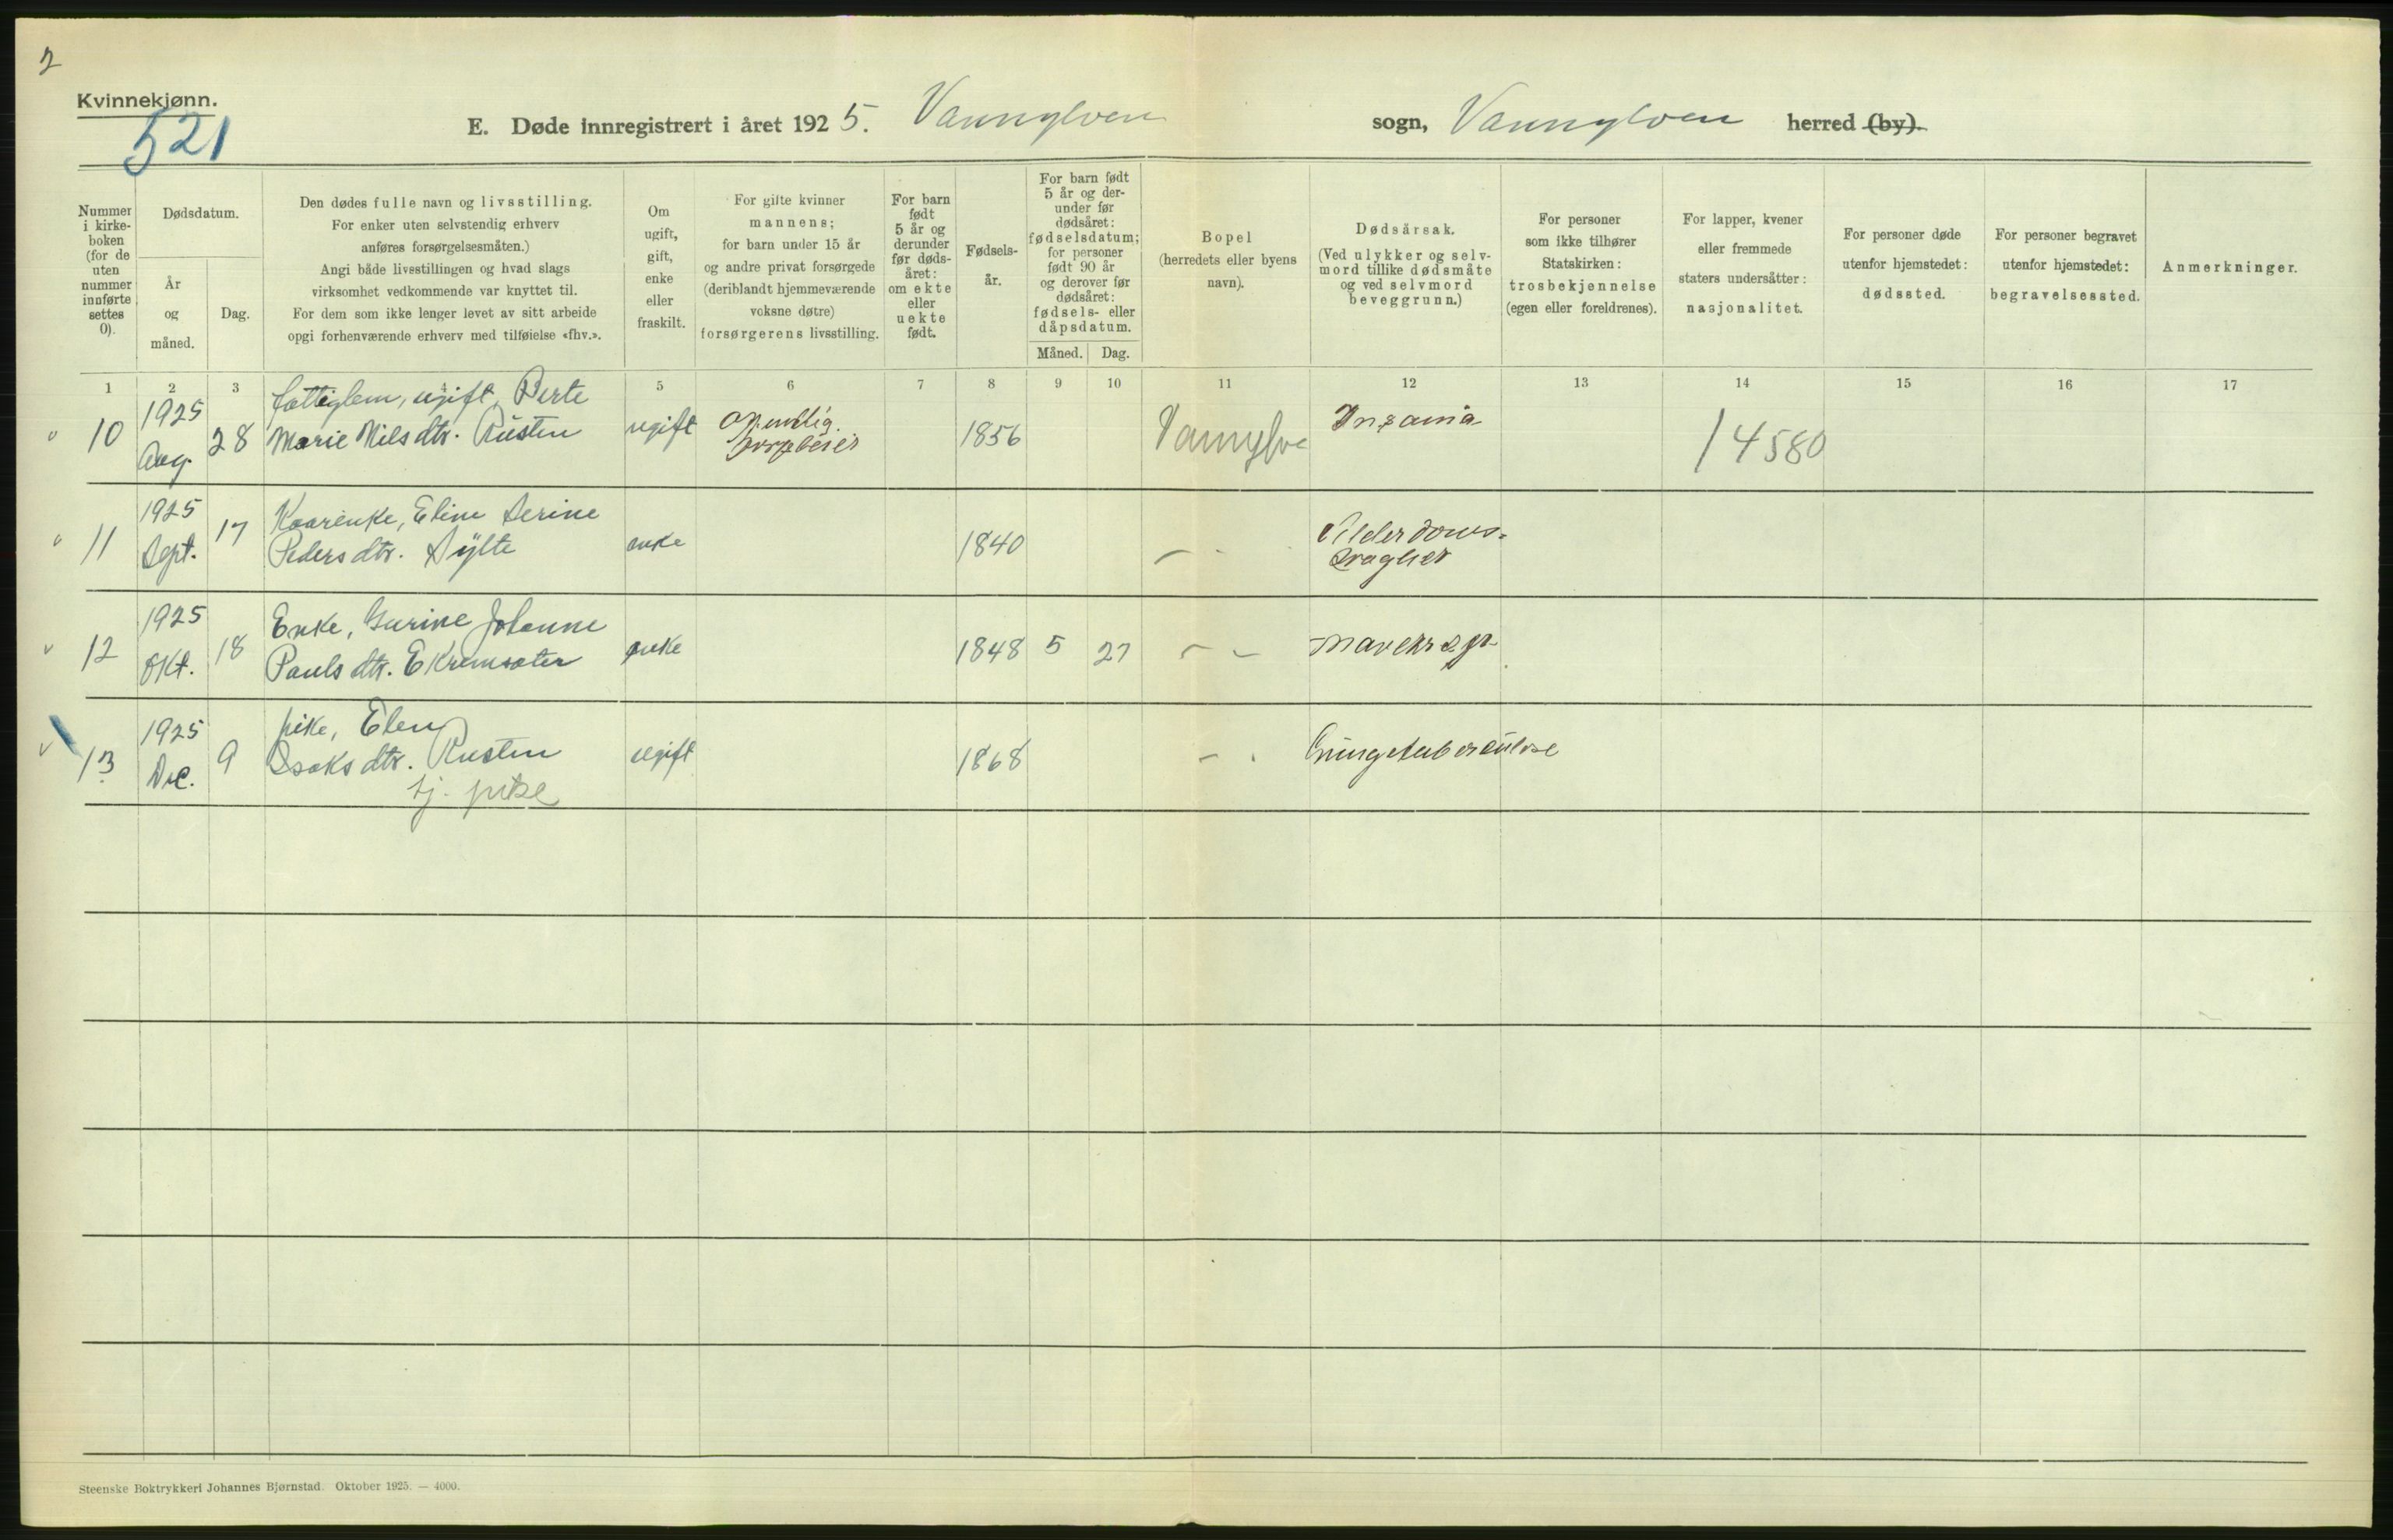 2
Kvinnekjønn.
521
E. Døde innregistrert i året 1925. Vannylven sogn, Vannylven herred (by).
Nummer i kirke-boken (for de uten nummer innførte settes 0).
Dødsdatum.
År og måned.
Dag.
Den dødes fulle navn og livsstilling.
For enker uten selvstendig erhverv
anføres forsørgelsesmåten.)
Angi både livsstillingen og hvad slags
virksomhet vedkommende var knyttet til.
For dem som ikke lenger levet av sitt arbeide
opgi forhenværende erhverv med tilføielse «fhv.».
Om ugift, gift, enke eller fraskilt.
For gifte kvinner
mannens;
for barn under 15 år
og andre privat forsørgede
(deriblandt hjemmeværende
voksne døtre)
forsørgerens livsstilling.
For barn født 5 år og derunder før døds-året: om ekte eller uekte født.
Fødsels-år.
For barn født 5 år og der-under før dødsåret: fødselsdatum; for personer født 90 år og derover før dødsåret: fødsels- eller dåpsdatum.
Måned. Dag.
Bopel
(herredets eller byens
navn).
Dødsårsak.
(Ved ulykker og selv-
mord tillike dødsmåte
og ved selvmord
beveggrunn.)
For personer
som ikke tilhører
Statskirken:
trosbekjennelse
(egen eller foreldrenes).
For lapper, kvener
eller fremmede
staters undersåtter:
nasjonalitet.
For personer døde
utenfor hjemstedet:
dødssted.
For personer begravet
utenfor hjemstedet:
begravelsessted.
Anmerkninger.
1 2 3 4 5 6 7 8 9 10 11 12 13 14 15 16 17
10 1925 Aug. 28 fattiglem, ugift, Berte
Marie Nilsdtr. Rusten ugift Offentlig
forpleiet 1856 Vannylve Insania 14580
11 1925 Sept. 17 Kaarenke, Eline Serine
Pedersdtr. Sylte enke 1840 — - Alderdoms-
svaghet
12 1925 Okt. 18 Enke, Gurine Johanne
Paulsdtr. Ekremsæter enke 1848 5 27 - - Mavekræft
13 1925 Dec. 9 pike, Elen
Isaksdtr. Rusten ugift 1868 - - Lungetuberculose
tj. pike
Steenske Boktrykkeri Johannes Bjørnstad. Oktober 1925. — 4000.